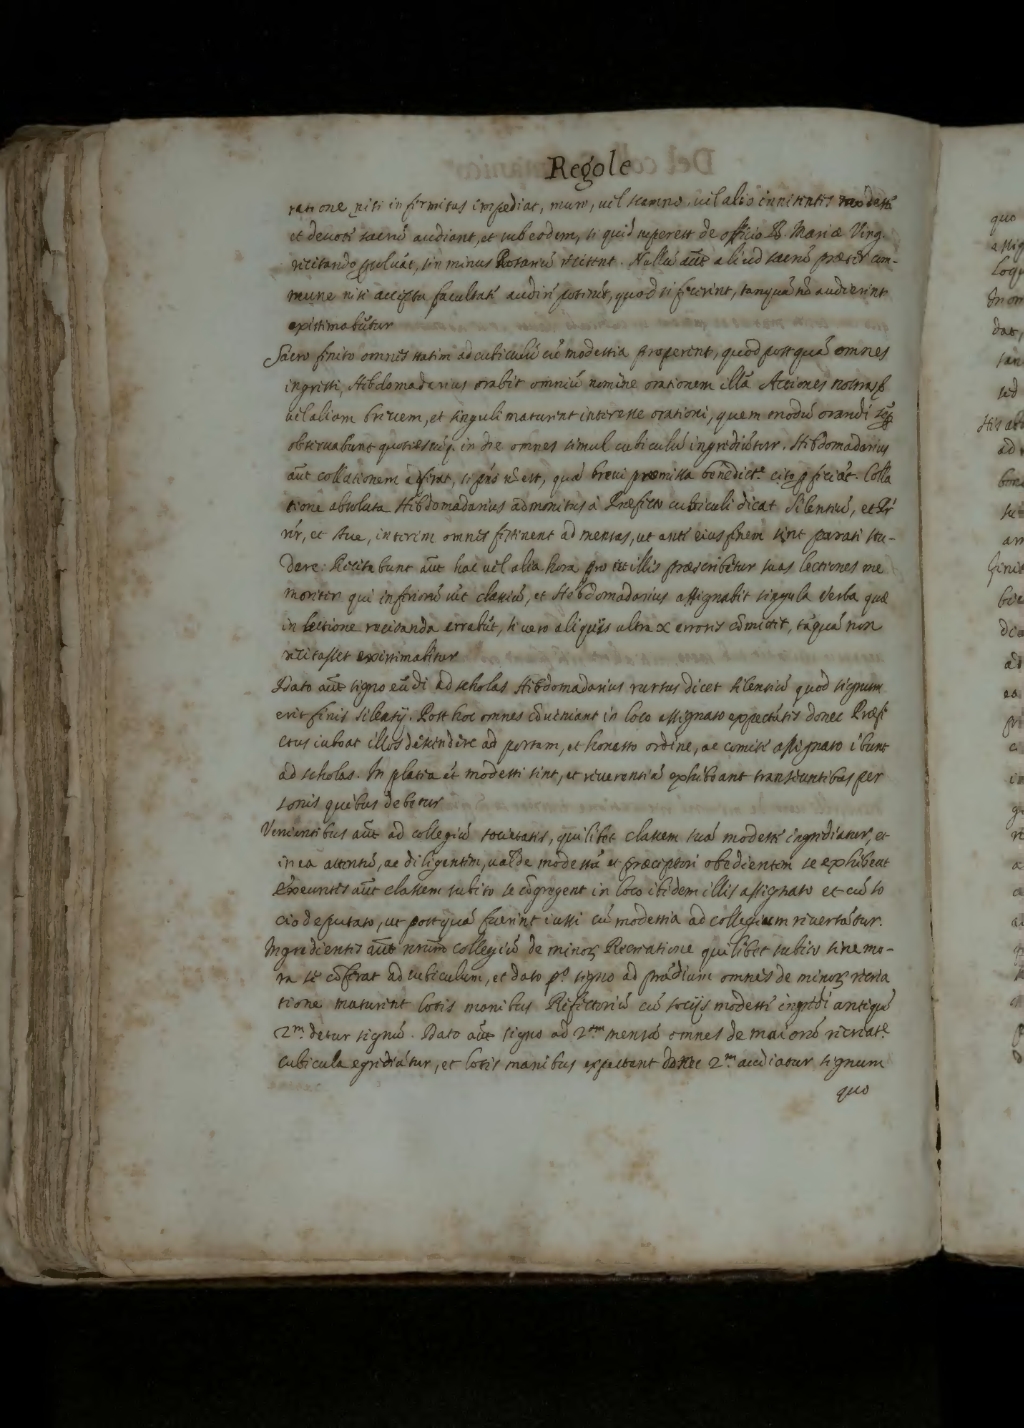 Regole
ratione nisi infirmitas impediat, muro, vel scamno, vel alio innitentes modestè
et devotè sacrũ audiant, et sub eodem, si quid superest de officio B. Mariæ Virg.
recitando, sin minus Rosariũ recitent. Nullũ aũt aliud sacrũ præter com-
mune nisi accepta facultate audire poterũt, quod si fecerint, tanquã nõ audierint
existimabũtur
Sacro finito omnes statim ad cubiculũ cũ modestia properent, quod postquã omnes
ingressi, Hebdomadarius orabit omniũ nomine orationem illã Actiones nostras
vel aliam brevem, et singuli maturent interesse orationi, quem modũ orandi
observabunt quotiescũq. in die omnes simul cubiculũ ingrediẽtur. Hebdomadarius
aũt collationem afferat, si pñs nõ est, quã brevi præmissa benedict.e cito pficiẽt. Colla
tione absoluta Hebdomadarius admonitus à Præfecto cubiculi dicat Silentiũ, et
et Ave, interim omnes festinent ad mensas, ut ante eius finem sint parati stu-
dere. Recitabunt aũt hac vel alia hora pro ut illis præscribetur suas lectiones me
moriter qui inferiorũ sũt classiũ, et Hebdomadarius assignabit singula verba quæ
in lectione recitanda errabũt, si vero aliquis ultra x errores cõmiserit, tãquã non
recitasset existimabitur
Dato aũt signo eũdi ad scholas Hebdomadarius rursus dicet silentiũ quod signum
erit finis silentij. Post hoc omnes cõveniant in loco assignato expectãtes donec Præf
ctus iubeat illos descendere ad portam, et honesto ordine, ac comite assignato ibunt
ad scholas. In platea ẽt modesti sint, et reverentiã exhibeant transeuntibus per
sonis quibus debetur
Venientibus aũt ad collegiũ societatis, quilibet classem suã modestè ingrediatur, et
in ea attentũ, ac diligentem, valde modestũ et præceptori obedientem se exhibeat
Exeuntes aũt classem subito se cõgregent in loco ibidem illis assignato et cũ so
cio deputato, ut postquã fuerint iussi cũ modestia ad collegium revertãtur.
Ingredientes aũt nrũm collegiũ de minori Recreatione quilibet subito sine mo-
ra se cõferat ad cubiculum, et dato p.º signo ad prãdium omnes de minori recrea
tione maturent lotis manibus Refectoriũ cũ socijs modestè ingredi antequã
2.m detur signũ. Dato aũt signo ad 2.am mensã omnes de maiori recreat.e
cubicula egrediãtur, et lotis manibus expectent donec 2.m audiatur signum
quo